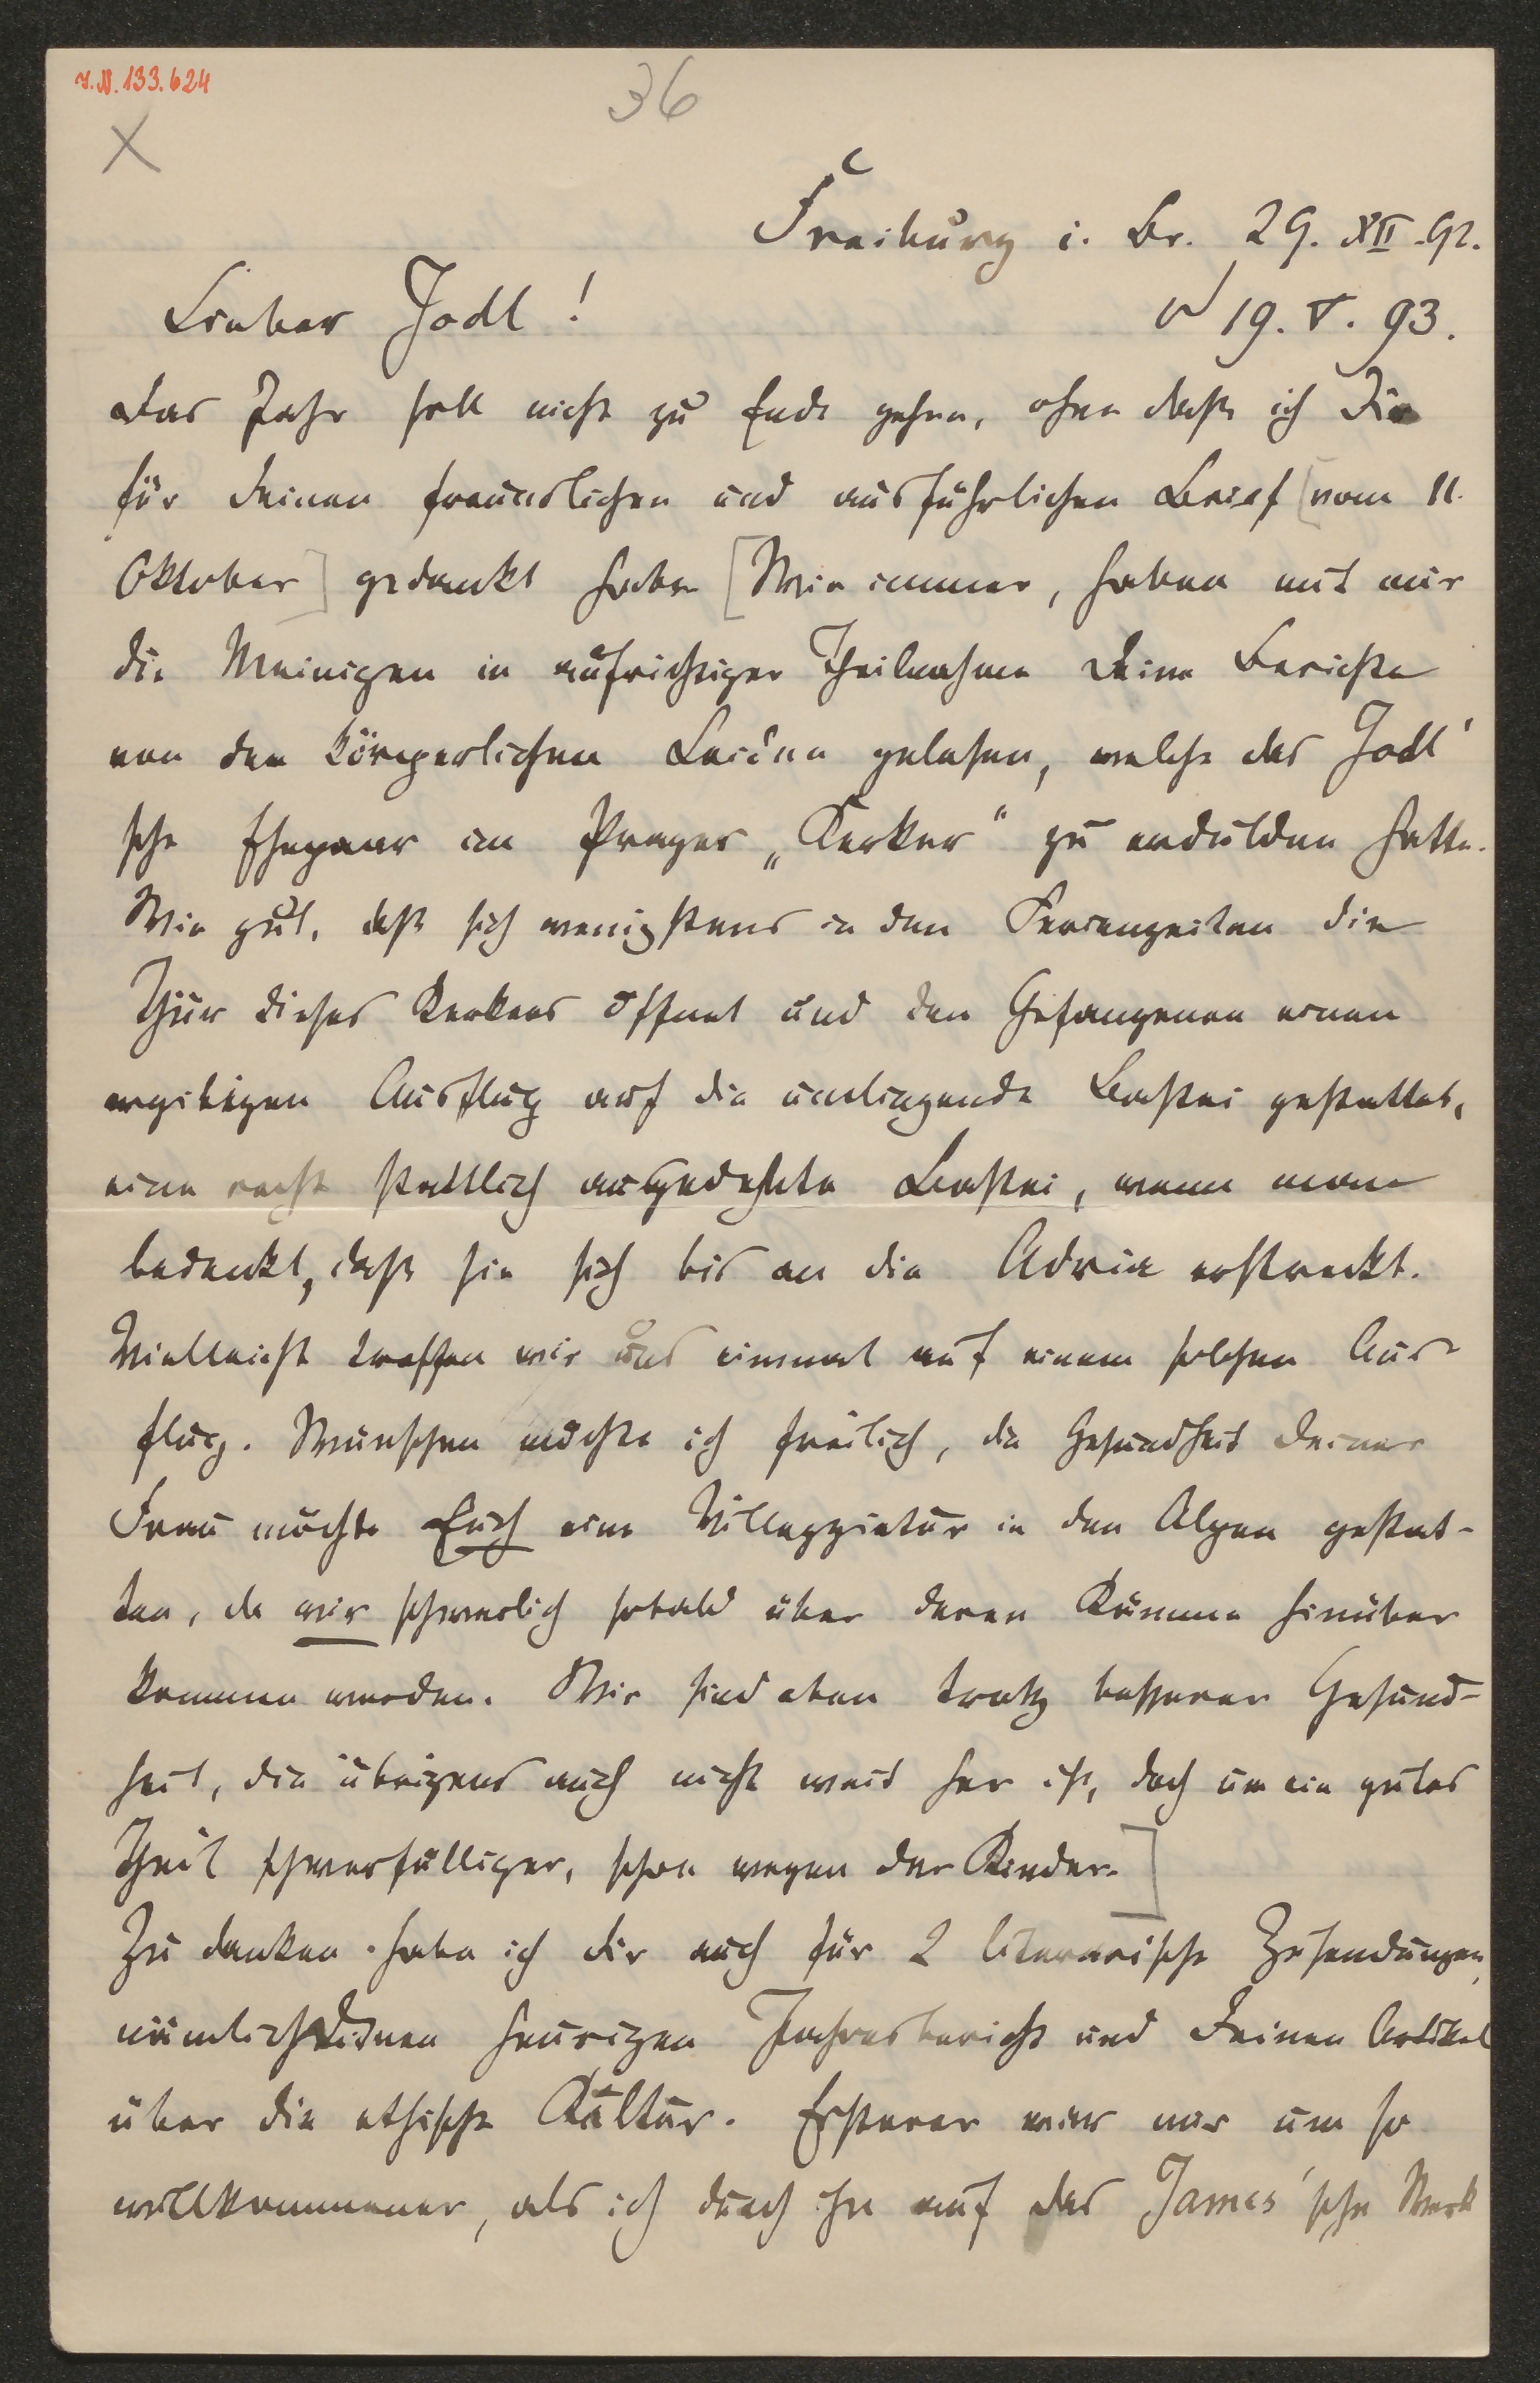 I.N. 133.624
36
X
Freiburg i. Br. 29. XII. 92.
Lieber Jodl!
19. V. 93.
Das Jahr soll nicht zu Ende gehen, ohne daß ich Dir
für Deinen freundlichen und ausführlichen Brief [vom 11.
Oktober] gedankt habe. [Wie immer, haben mit mir
die Meinigen in aufrichtiger Theilnahme Deine Berichte
von den körperlichen Leiden gelesen, welche das Jodl'
sche Ehepaar im Prager „Kerker“ zu erdulden hatte.
Wie gut, daß sich wenigstens in den Ferienzeiten die
Thür dieses Kerkers öffnet und den Gefangenen einen
ergibigen Ausflug auf die umliegende Bastei gestattet,
eine recht stattlich ausgedehnte Bastei, wenn man
bedenkt, daß sie sich bis an die Adria erstreckt.
Vielleicht treffen wir uns einmal auf einem solchen Aus-
flug. Wünschen möchte ich freilich, die Gesundheit Deiner
Frau möchte Euch eine Villeggiatur in den Alpen gestat-
ten, da wir schwerlich sobald über deren Kämme hinüber
kommen werden. Wir sind eben trotz besserer Gesund-
heit, die übrigens auch nicht weit her ist, doch um ein gutes
Theil schwerfälliger, schon wegen der Kinder.]
Zu danken habe ich dir auch für 2 literarische Zusendungen,
nämlich Deinen heurigen Jahresbericht und Deinen Artikel
über die ethische Kultur. Ersterer war mir um so
willkommener, als ich durch ihn auf das James'sche Werk